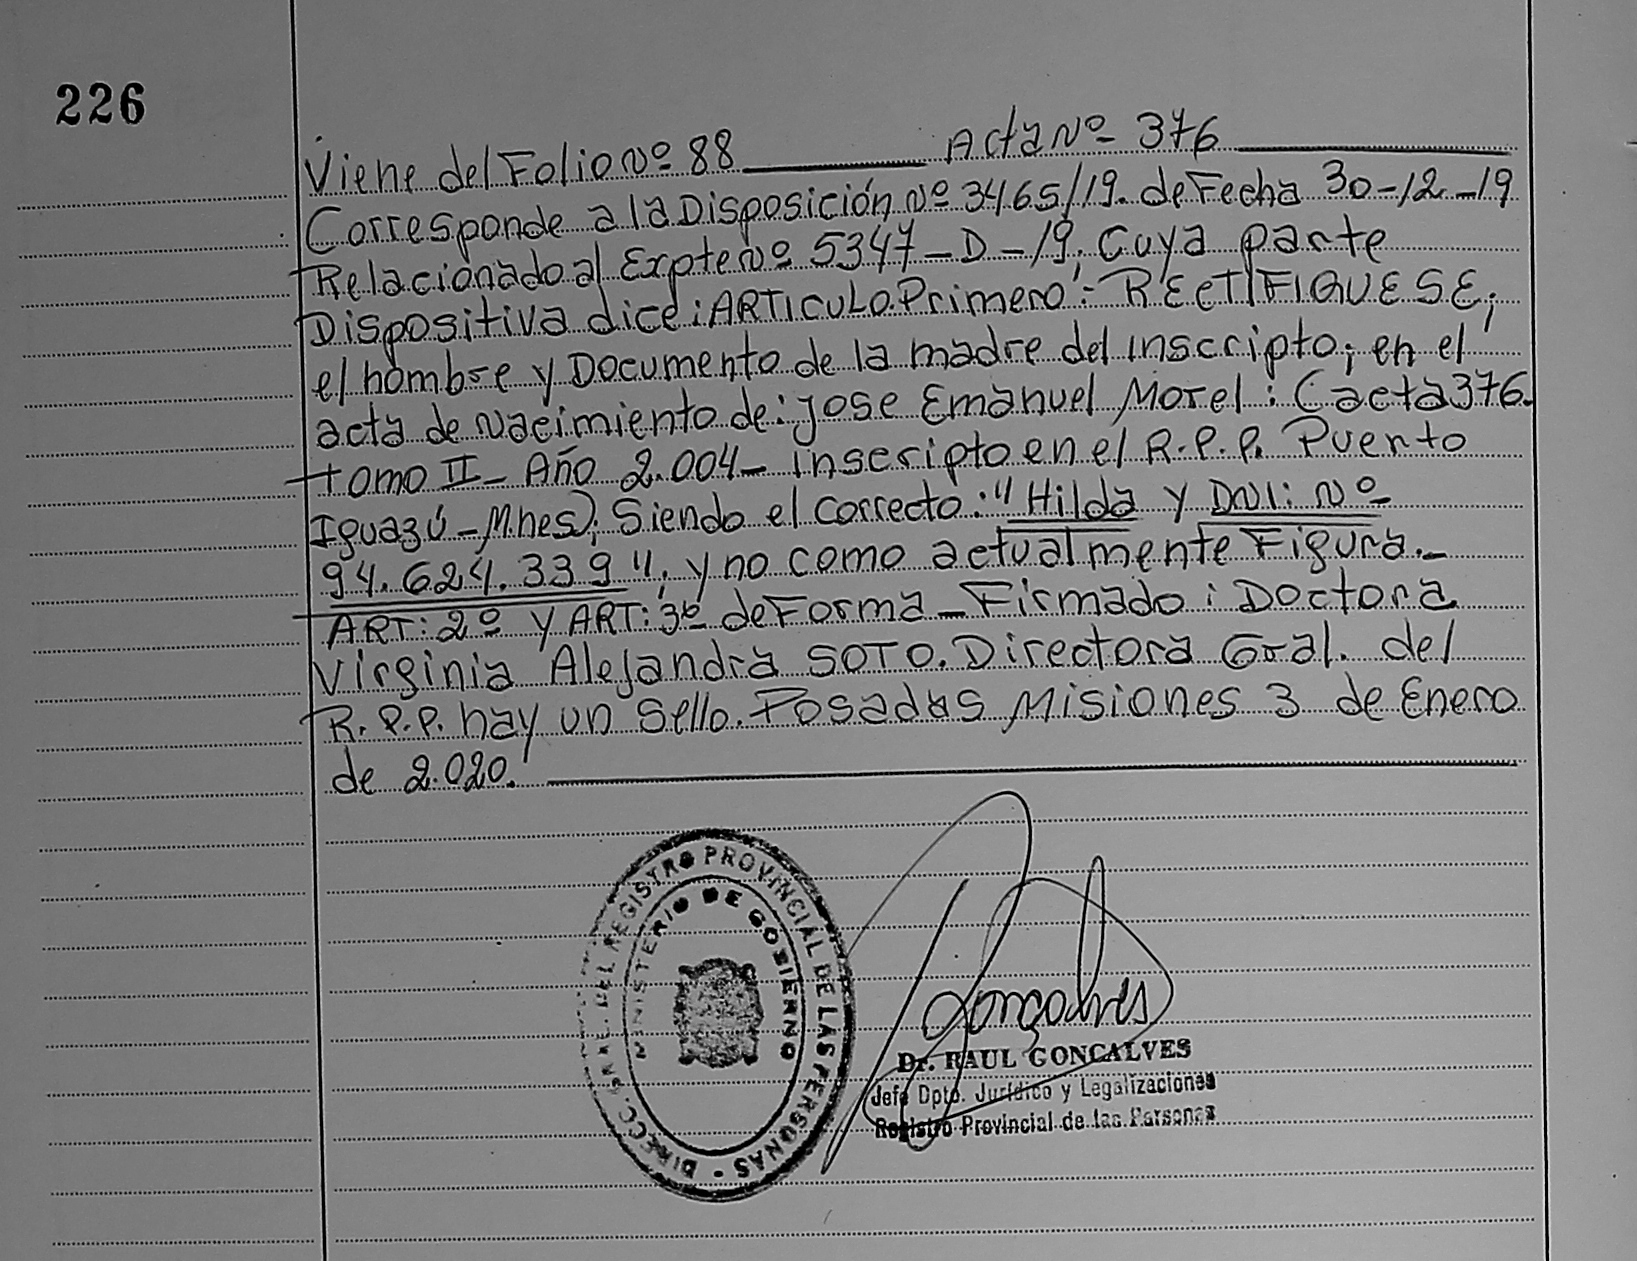 226
Viene del Folio Nº 88 Acta Nº 376
Corresponde a la Disposición Nº 3465/19. de Fecha 30-12-19
Relacionado al Expte Nº 5347-D-19. Cuya parte
Dispositiva dice: ARTICULO Primero: RECTIFIQUESE;
el nombre y Documento de la madre del inscripto; en el
acta de Nacimiento de: Jose Emanuel Morel: (acta 376.
tomo II- Año 2.004- inscripto en el R.P.P. Puerto
Iguazú-Mnes); Siendo el correcto: "Hilda y DNI: Nº
94.624.339", y no como actualmente Figura.-
ART: 2º Y ART: 3º de Forma- Firmado: Doctora
Virginia Alejandra SOTO. Directora Gral. del
R.P.P. hay un Sello. Posadas Misiones 3 de Enero
de 2.020.
DIRECC. GRAL. DEL REGISTRO PROVINCIAL DE LAS PERSONAS -
MINISTERIO DE GOBIERNO
Gonçalves
Dr. RAUL GONCALVES
Jefe Dpto. Jurídico y Legalizaciones
Registro Provincial de las Personas